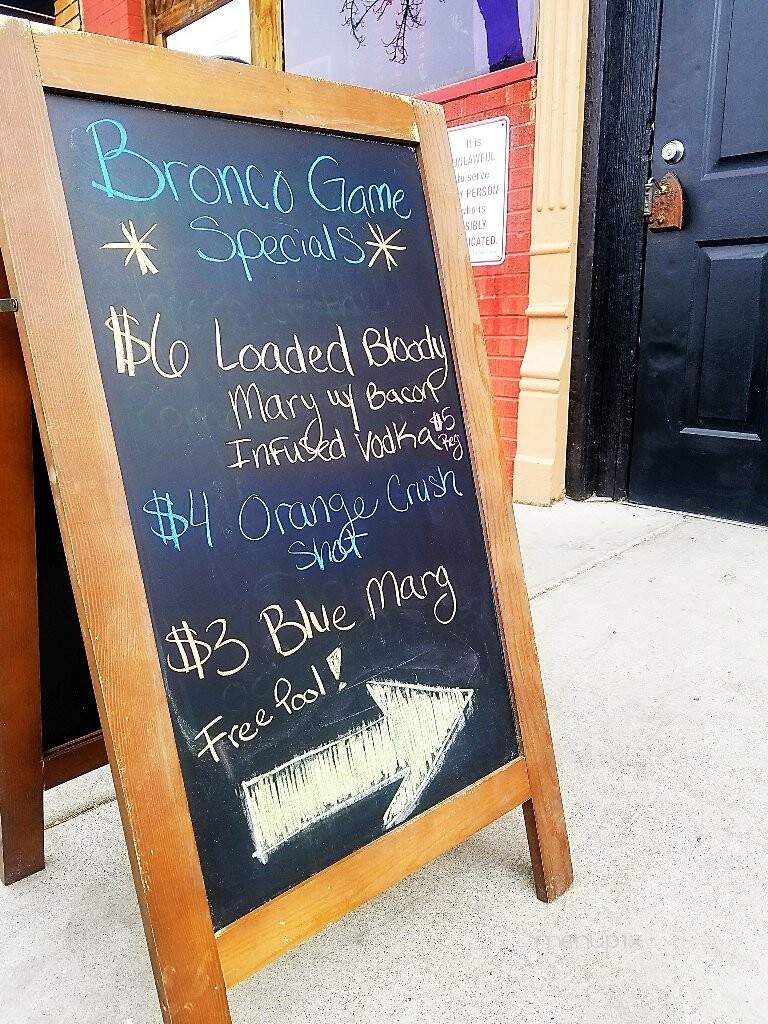 Bronco Game
Specials
$6 Loaded Bloody
Mary w/ Bacon
Infused Vodka $5
Reg
$4 Orange Crush
Shot
$3 Blue Marg
Free Pool!
It is
UNLAWFUL
to serve
PERSON
who is
SIBLY
ICATED.
menupix